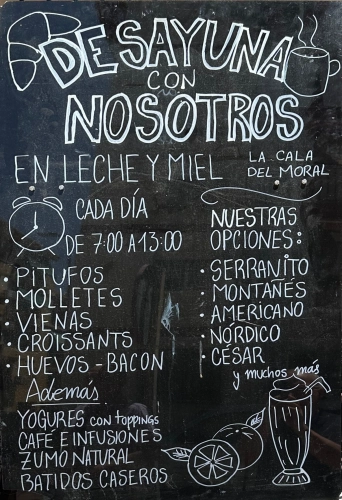 DESAYUNA
CON
NOSOTROS
EN LECHE Y MIEL
LA CALA
DEL MORAL
CADA DÍA
DE 7:00 A 13:00
• PITUFOS
• MOLLETES
• VIENAS
• CROISSANTS
• HUEVOS - BACON
Además
YOGURES con toppings
CAFÉ E INFUSIONES
ZUMO NATURAL
BATIDOS CASEROS
NUESTRAS
OPCIONES:
• SERRANITO
MONTAÑES
• AMERICANO
NÓRDICO
• CÉSAR
y muchos más